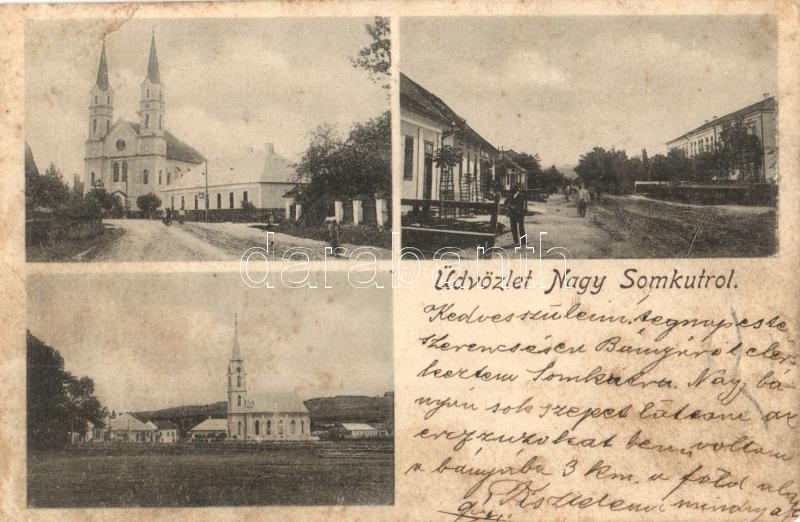 Üdvözlet Nagy Somkutrol.
Kedves szüleim, tegnap este
szerencsésen Bányáról elér-
keztem Somkutra. Nagy bá-
nyán sok szépet láttam az
ércz zúzókat bent voltam
a bányába 3 km. a föld alatt
darabanth